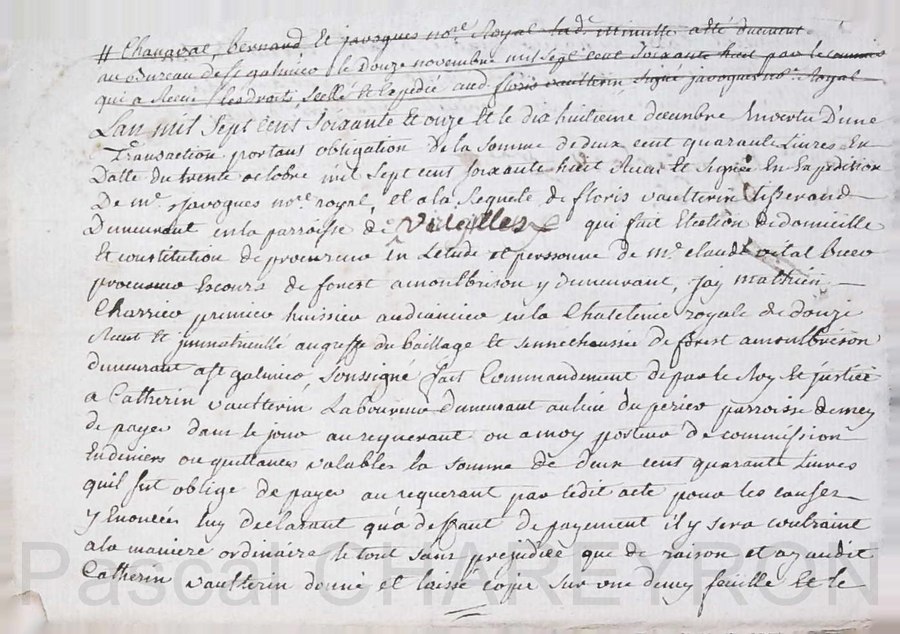 # Chanaval, bernard et javogues no.re Royal lad.e Minutte a été
au bureau de st galmier le Douze novembre mil sept cent soixante huit par le commis
qui a Receu les droits, scelle et Expedie aud floris vaultrin signé javogues no.re Royal
Lan mil sept cent soixante et onze et le dix huitieme decembre En vertu D'une
Transaction portant obligation de la somme de deux cent quarante Livres En
Datte du trente octobre mil sept cent soixante huit Recue et signée En Expedition
De me javogues no.re royal, et a la Requete de floris vaulterin tisserand
Demeurant en la parroisse de Virieilles qui fait Election de domicille
Et constitution de procureur En Letude et perssonne de me claude vital
procureur Escours de forest a montbrison y demeurant, jay mathieu
Charriere premier huissier audiancier en la Chatelenie royale de donzi
Receu et jmmatriculle au greffe du baillage et sennechaussée de forest a montbrison
demeurant a st galmier, soussigne fait Commandement de par le Roy Et justice
a Catherin vaulterin Laboureur demeurant au lieu du perier parroisse de mey
de payer dans le jour au requerant ou a moy porteur de commission
En deniers ou quittances valables la somme de deux cent quarante Livres
quil fut oblige de payer au requerant par ledit acte pour les causes
y Enoncées luy declarant qua deffaut de payement il y sera contraint
a la maniere ordinaire le tout sans prejudice que de raison et ay audit
Catherin vaulterin donné et laisse copie sur une demy feuille Et le
Pascal CHAREYRON